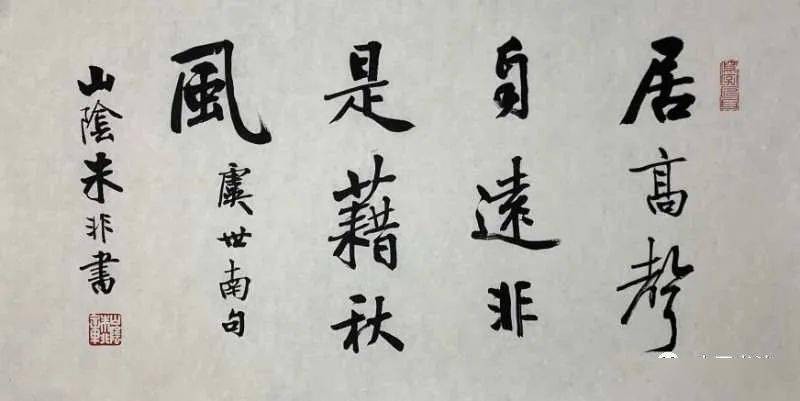 居高聲
自遠非
是藉秋
風
虞世南句
山陰朱非書